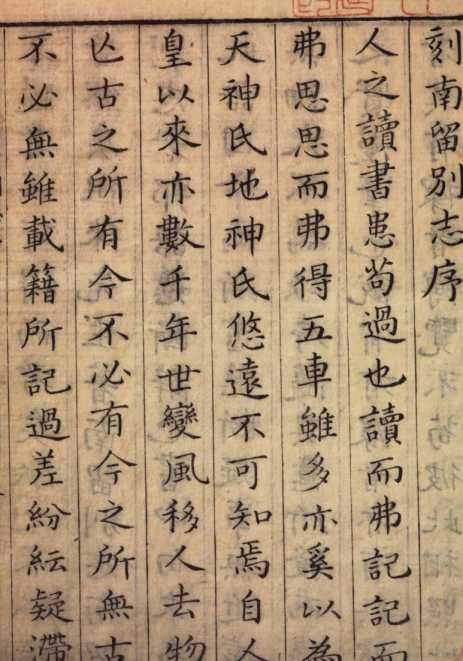 刻南留別志序
人之讀書患苟過也讀而弗記記而
弗思思而弗得五車雖多亦奚以為
天神氏地神氏悠遠不可知焉自人
皇以來亦數千年世變風移人去物
亾古之所有今不必有今之所無古
不必無雖載籍所記過差紛紜疑滯